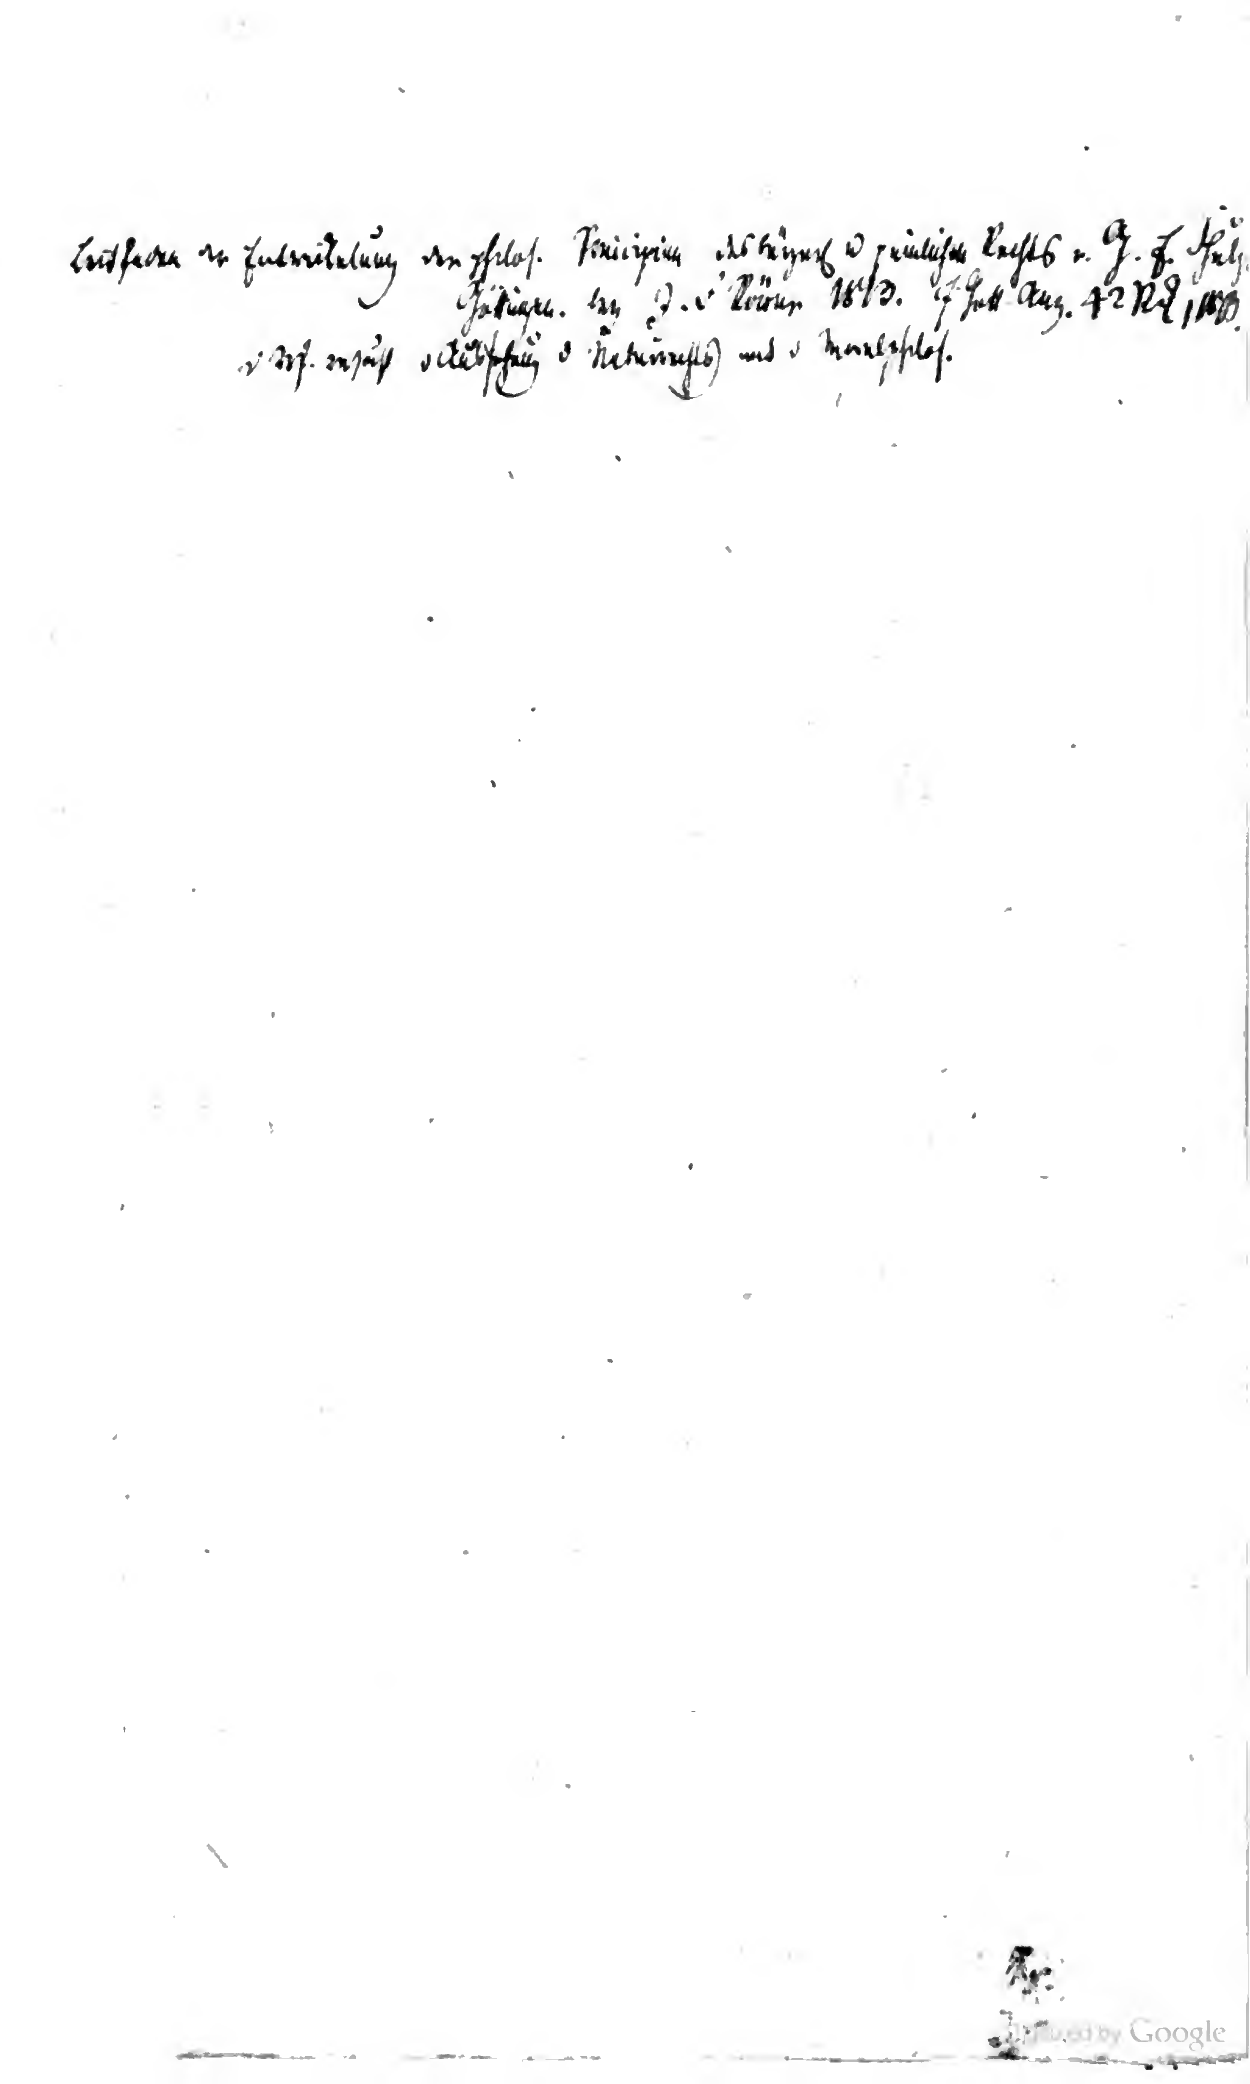 Leitfaden der Entwickelung der philos. Principien des bürgerl u peinlichen Rechts v. G. E. Schulz.
Göttingen. bey Röwer 1813. Gött Anz. 42 1813.
d Vrf. d Naturrechts und d Moralphilos.
Digitized by Google